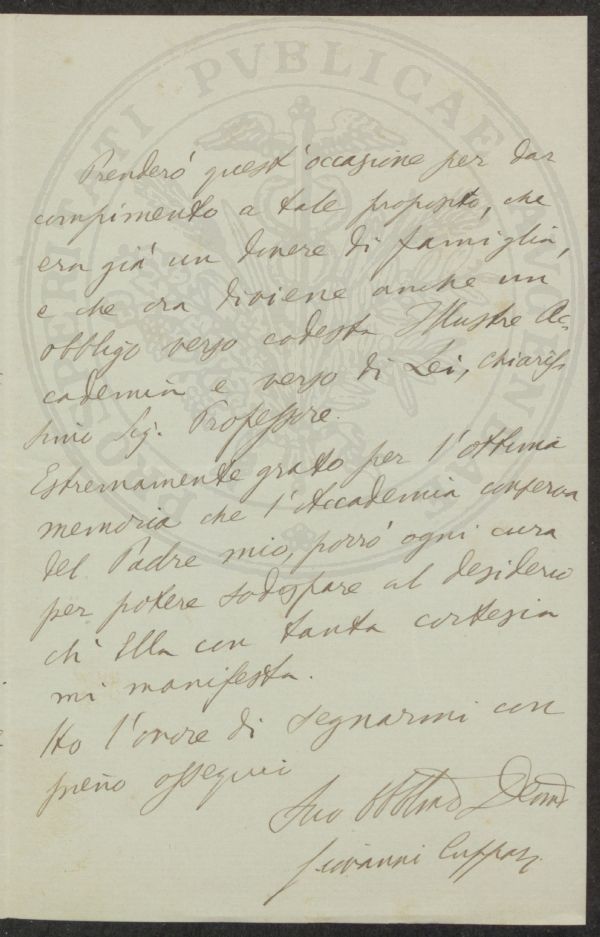 PROSPERITATI PVBLICAE AVGENDAE
Prenderò quest'occasione per dar
compimento a tale proposito, che
era già un dovere di famiglia,
e che ora diviene anche un
obbligo verso codesta Illustre Ac-
cademia e verso di Lei, chiaris
simo Sig. Professore.
Estremamente grato per l'ottima
memoria che l'Accademia conserva
del Padre mio, porrò ogni cura
per potere sodisfare al desiderio
ch'Ella con tanta cortesia
mi manifesta.
Ho l'onore di segnarmi con
pieno ossequio
Suo Obblmo Devmo
Giovanni Cuppari